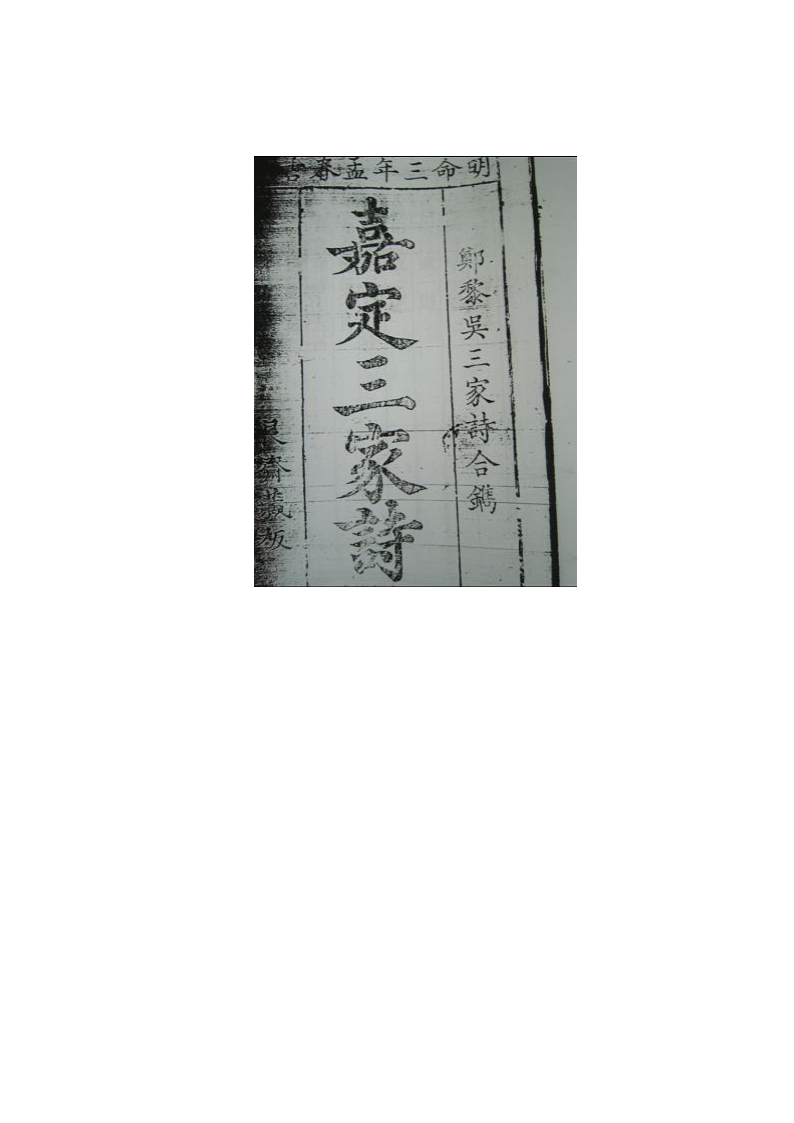 明命三年孟春吉
鄭黎吳三家詩合鐫
嘉定三家詩
齋藏板